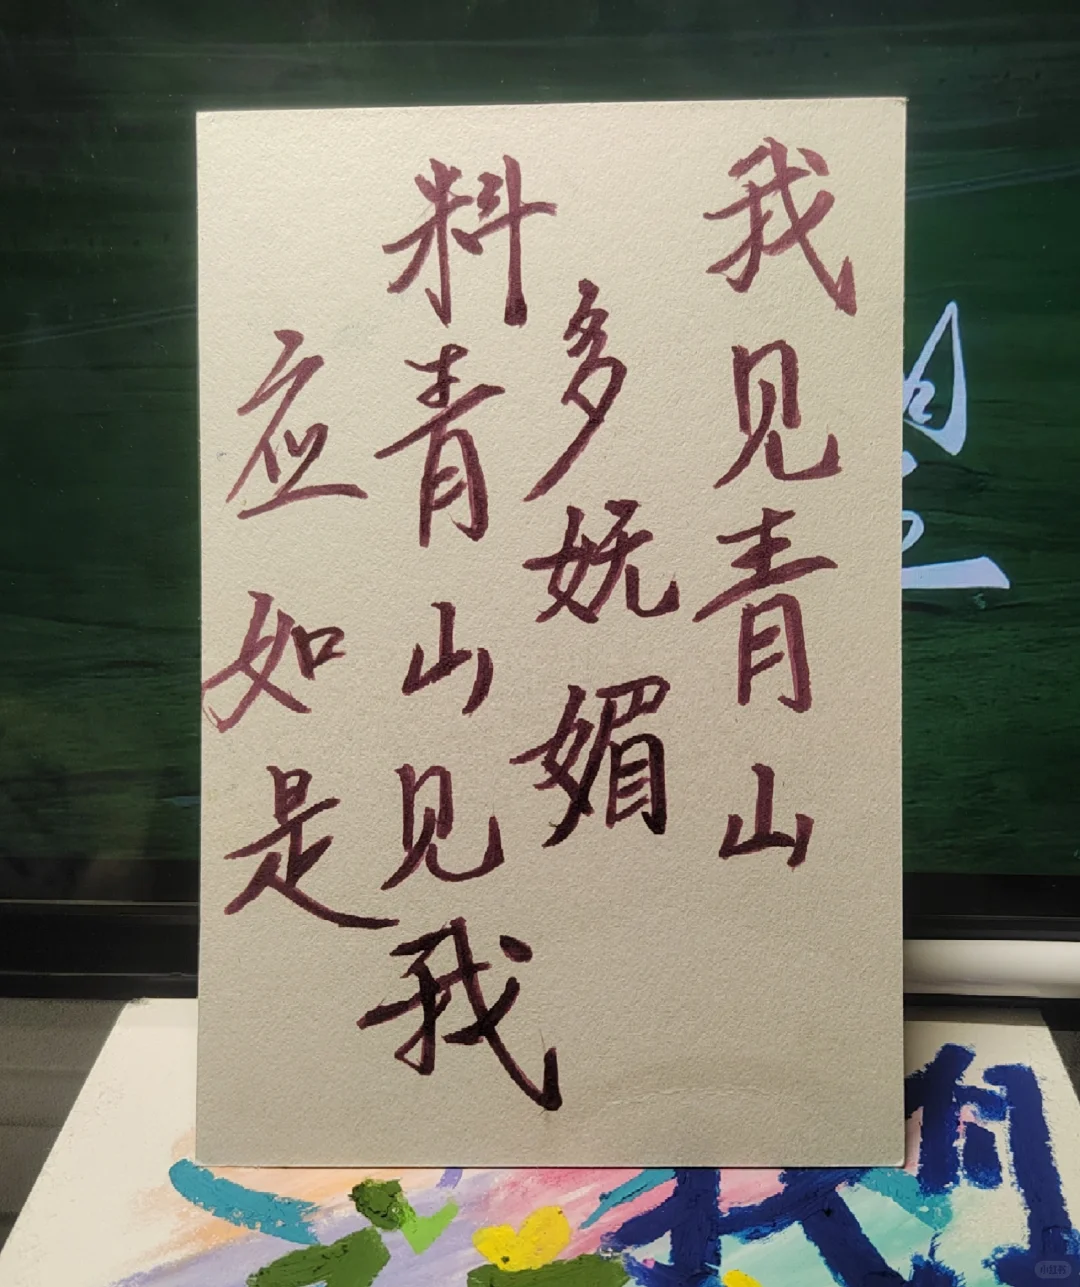 我见青山
多妩媚
料青山见我
应如是
小红书